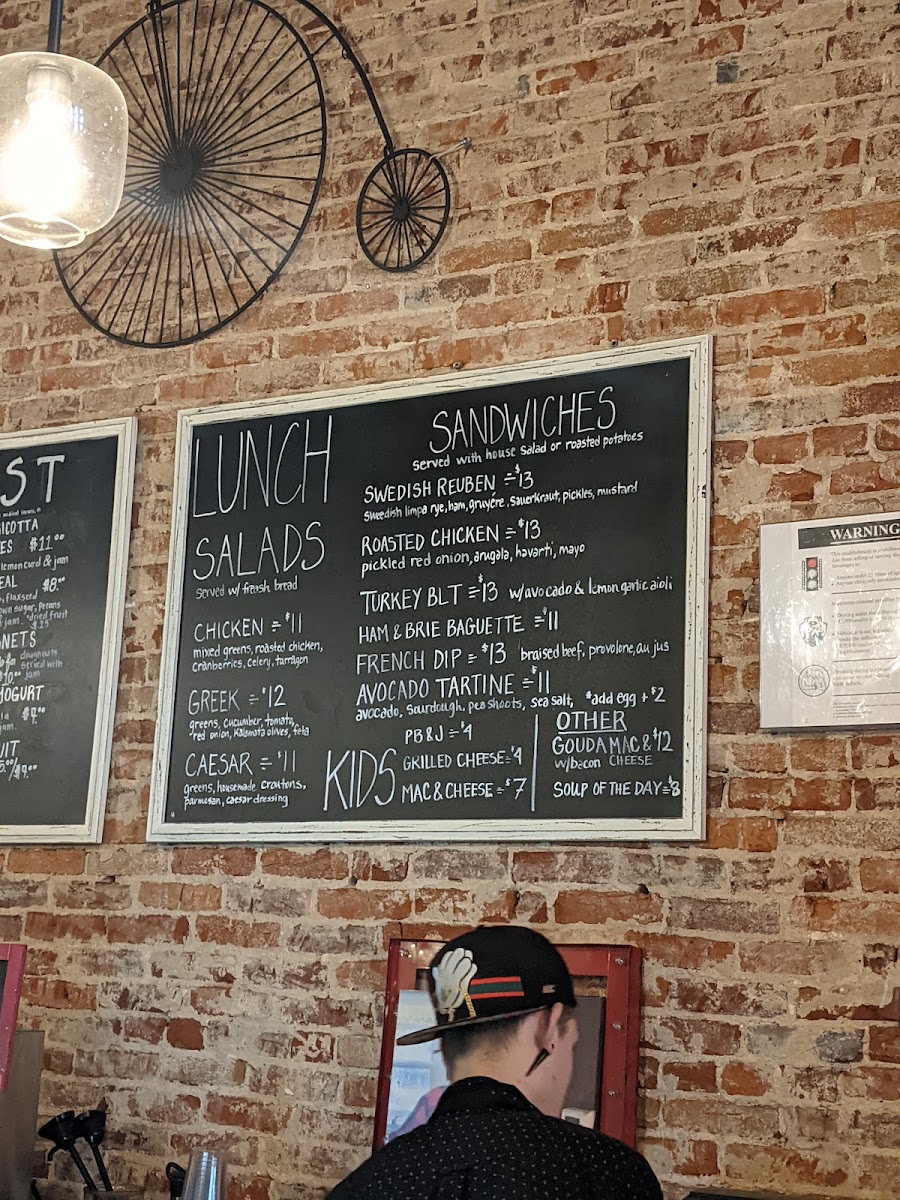 ST
RICOTTA
ES $11.00
lemon curd & jam
EAL $8.00
, flaxseed
own sugar, pecans
& jam. *dried fruit
NETS
doughnuts
served with
jam
YOGURT
jam.
UIT
LUNCH
SALADS
served w/ fresh bread
CHICKEN = $11
mixed greens, roasted chicken,
cranberries, celery, tarragon
GREEK = $12
greens, cucumber, tomato,
red onion, Kalamata olives, feta
CAESAR = $11
greens, housemade croutons,
parmesan, caesar dressing
SANDWICHES
served with house salad or roasted potatoes
SWEDISH REUBEN = $13
Swedish limpa rye, ham, gruyere, sauerkraut, pickles, mustard
ROASTED CHICKEN = $13
pickled red onion, arugala, havarti, mayo
TURKEY BLT = $13 w/avocado & lemon garlic aioli
HAM & BRIE BAGUETTE = $11
FRENCH DIP = $13 braised beef, provolone, au jus
AVOCADO TARTINE = $11
avocado, sourdough, pea shoots, sea salt, *add egg + $2
KIDS
PB & J = $4
GRILLED CHEESE = $4
MAC & CHEESE = $7
OTHER
GOUDA MAC & $12
w/bacon CHEESE
SOUP OF THE DAY = $8
WARNING